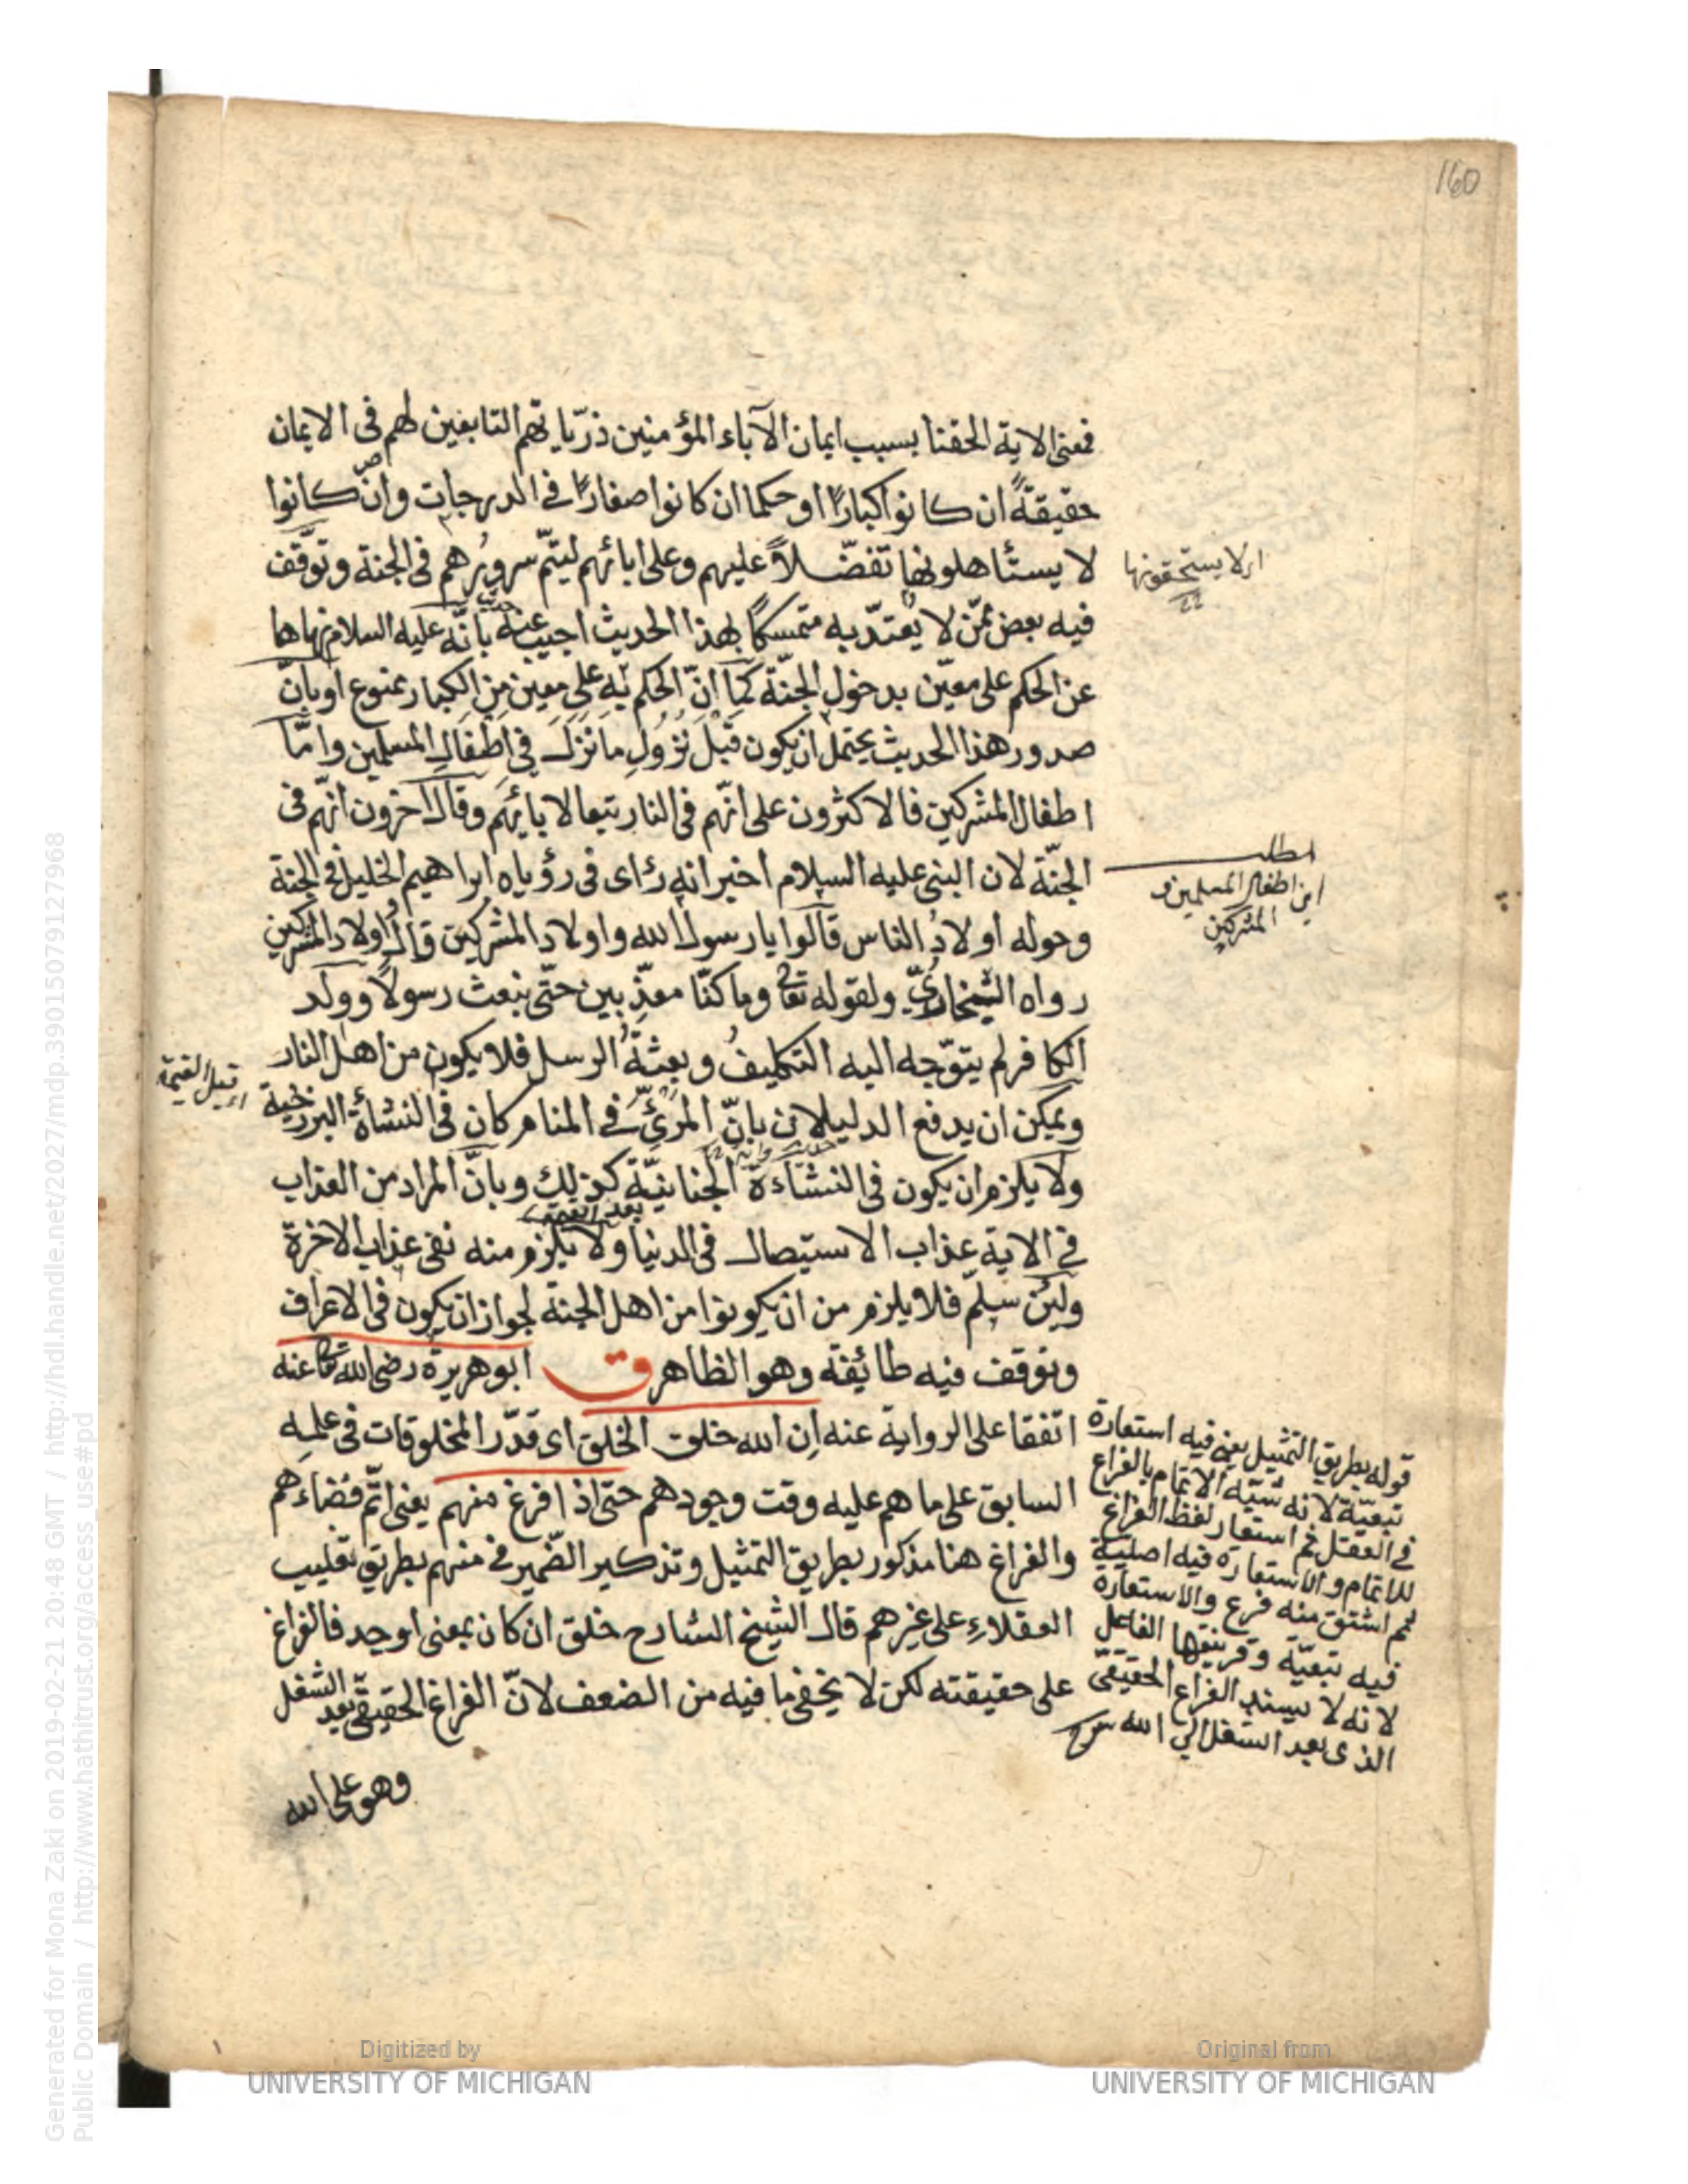 160
فمعنى الاية الحقنا بسبب ايمان الآباء المؤمنين ذرّياتهم التابعين لهم فى الايمان
حقيقةً ان كانوا كبارًا او حكما ان كانوا صغارًا فى الدرجات وان كانوا
لا يستأهلونها تفضّلاً عليهم وعلى ابائهم ليتمّ سرورُهم فى الجنة وتوّقف
فيه بعض ممّن لا يعتدّ به متمسكًا بهذا الحديث اجيب عنه بانّه عليه السلام نهاها
عن الحكم على معيّن بدخول الجنّة كما انّ الحكم به على معين من الكبار ممنوع او بانّ
صدور هذا الحديث يحتمل ان يكون قَبْلَ نُزُولِ مَا نَزَلَ فى اطْفَالِ المسلمين وامّا
اطفال المشركين فالاكثرون على انّهم فى النار تبعا لابائهم وقال اخرون انّهم فى
الجنّة لان النبى عليه السلام اخبر انه رأى فى رؤياه ابراهيم الخليل فى الجنة
وحوله اولادُ الناس قالوا يا رسول الله واولاد المشركين قال واولاد المشركين
رواه البخارىّ ولقوله تعالى وما كنّا معذّبين حتّى نبعث رسولاً وولد
الكافر لم يتوّجه اليه التكليفُ وبعثةُ الرسل فلا يكون من اهل النار
ويمكن ان يدفع الدليلان بانّ المرئىّ فى المنام كان فى النشأة البرزخية
ولا يلزم ان يكون فى النشاءة الجنانيّة كذلك وبانّ المراد من العذاب
فى الاية عذاب الاستيصال فى الدنيا ولا يلزم منه نفى عذاب الاخرة
ولئن سلّم فلا يلزم من ان يكونوا من اهل الجنة لجواز ان يكون فى الاعراف
وتوقف فيه طائفة وهو الظاهر ق ابو هريرة رضى الله تعالى عنه
اتفقا على الرواية عنه ان الله خلق الخلق اى قدّر المخلوقات فى علمه
السابق على ما هم عليه وقت وجودهم حتى اذا فرغ منهم يعنى اتمّ قضاءهم
والفراغ هنا مذكور بطريق التمثيل وتذكير الضّمير فى منهم بطريق تغليب
العقلاءِ على غيرهم قال الشيخ الشارح خلق ان كان بمعنى اوجد فالفراغ
على حقيقته لكن لا يخفى ما فيه من الضعف لانّ الفراغ الحقيقىّ بعد الشغل
وهو على الله
اى لا يستحقونها
مطلب
اين اطفال المسلمين و
المشركين
اى قبل القيمة
بعد القيمة
قوله بطريق التمثيل يعنى فيه استعارة
تبعيّة لانه شبّه الاتمام بالفراغ
فى العقل ثم استعار لفظ الفراغ
للاتمام والاستعارة فيه اصلية
ثم اشتق منه فرغ والاستعارة
فيه تبعيّة وقرينتها الفاعل
لانه لا يسند الفراغ الحقيقىّ
الذى بعد الشغل الى الله
Generated for Mona Zaki on 2019-02-21 20:48 GMT / http://hdl.handle.net/2027/mdp.39015079127968
Public Domain / http://www.hathitrust.org/access_use#pd
Digitized by
UNIVERSITY OF MICHIGAN
Original from
UNIVERSITY OF MICHIGAN